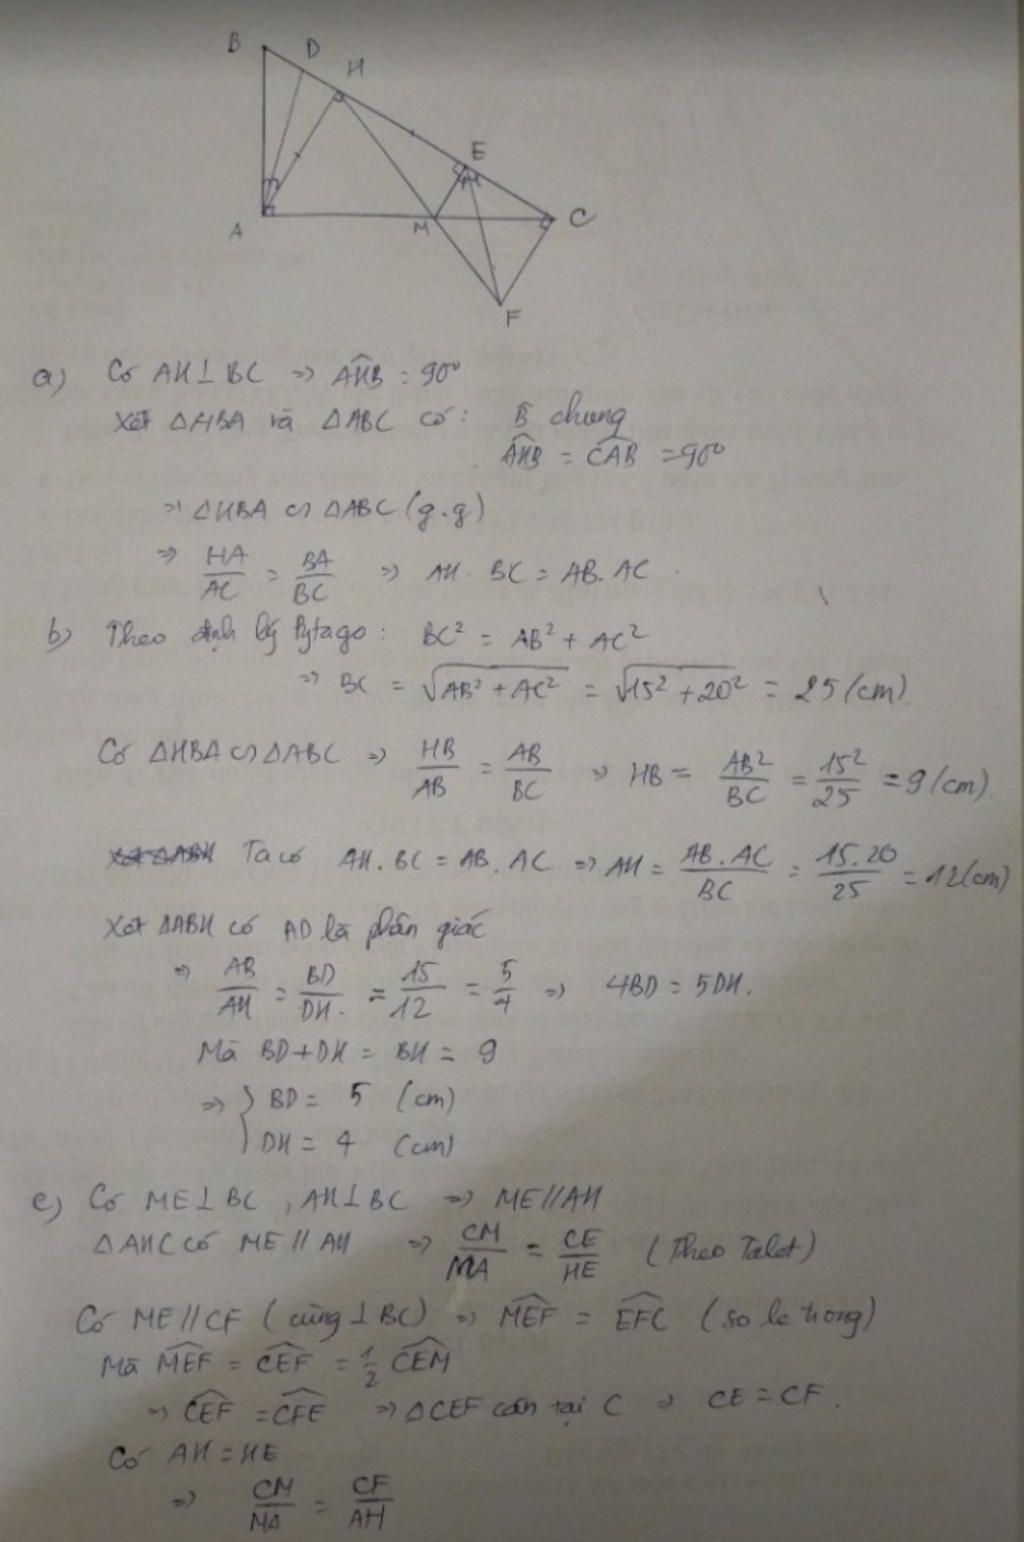 B D H
E
A M C
F
a) Có AH ⊥ BC ⇒ \widehat{AHB} = 90°
Xét △HBA và △ABC có: \widehat{B} chung
\widehat{AHB} = \widehat{CAB} = 90°
⇒ △HBA ∽ △ABC (g.g)
⇒ \frac{HA}{AC} = \frac{BA}{BC} ⇒ AH . BC = AB . AC
b) Theo định lý Pytago: BC² = AB² + AC²
⇒ BC = \sqrt{AB² + AC²} = \sqrt{15² + 20²} = 25 (cm).
Có △HBA ∽ △ABC ⇒ \frac{HB}{AB} = \frac{AB}{BC} ⇒ HB = \frac{AB²}{BC} = \frac{15²}{25} = 9 (cm).
Ta có AH . BC = AB . AC ⇒ AH = \frac{AB . AC}{BC} = \frac{15 . 20}{25} = 12 (cm)
Xét △ABH có AD là phân giác
⇒ \frac{AB}{AH} = \frac{BD}{DH} = \frac{15}{12} = \frac{5}{4} ⇒ 4BD = 5DH.
Mà BD + DH = BH = 9
⇒ { BD = 5 (cm)
DH = 4 (cm)
c) Có ME ⊥ BC , AH ⊥ BC ⇒ ME // AH
△AHC có ME // AH ⇒ \frac{CM}{MA} = \frac{CE}{HE} (Theo Talet)
Có ME // CF (cùng ⊥ BC) ⇒ \widehat{MEF} = \widehat{EFC} (so le trong)
Mà \widehat{MEF} = \widehat{CEF} = \frac{1}{2} \widehat{CEM}
⇒ \widehat{CEF} = \widehat{CFE} ⇒ △CEF cân tại C ⇒ CE = CF.
Có AH = HE
⇒ \frac{CM}{MA} = \frac{CF}{AH}